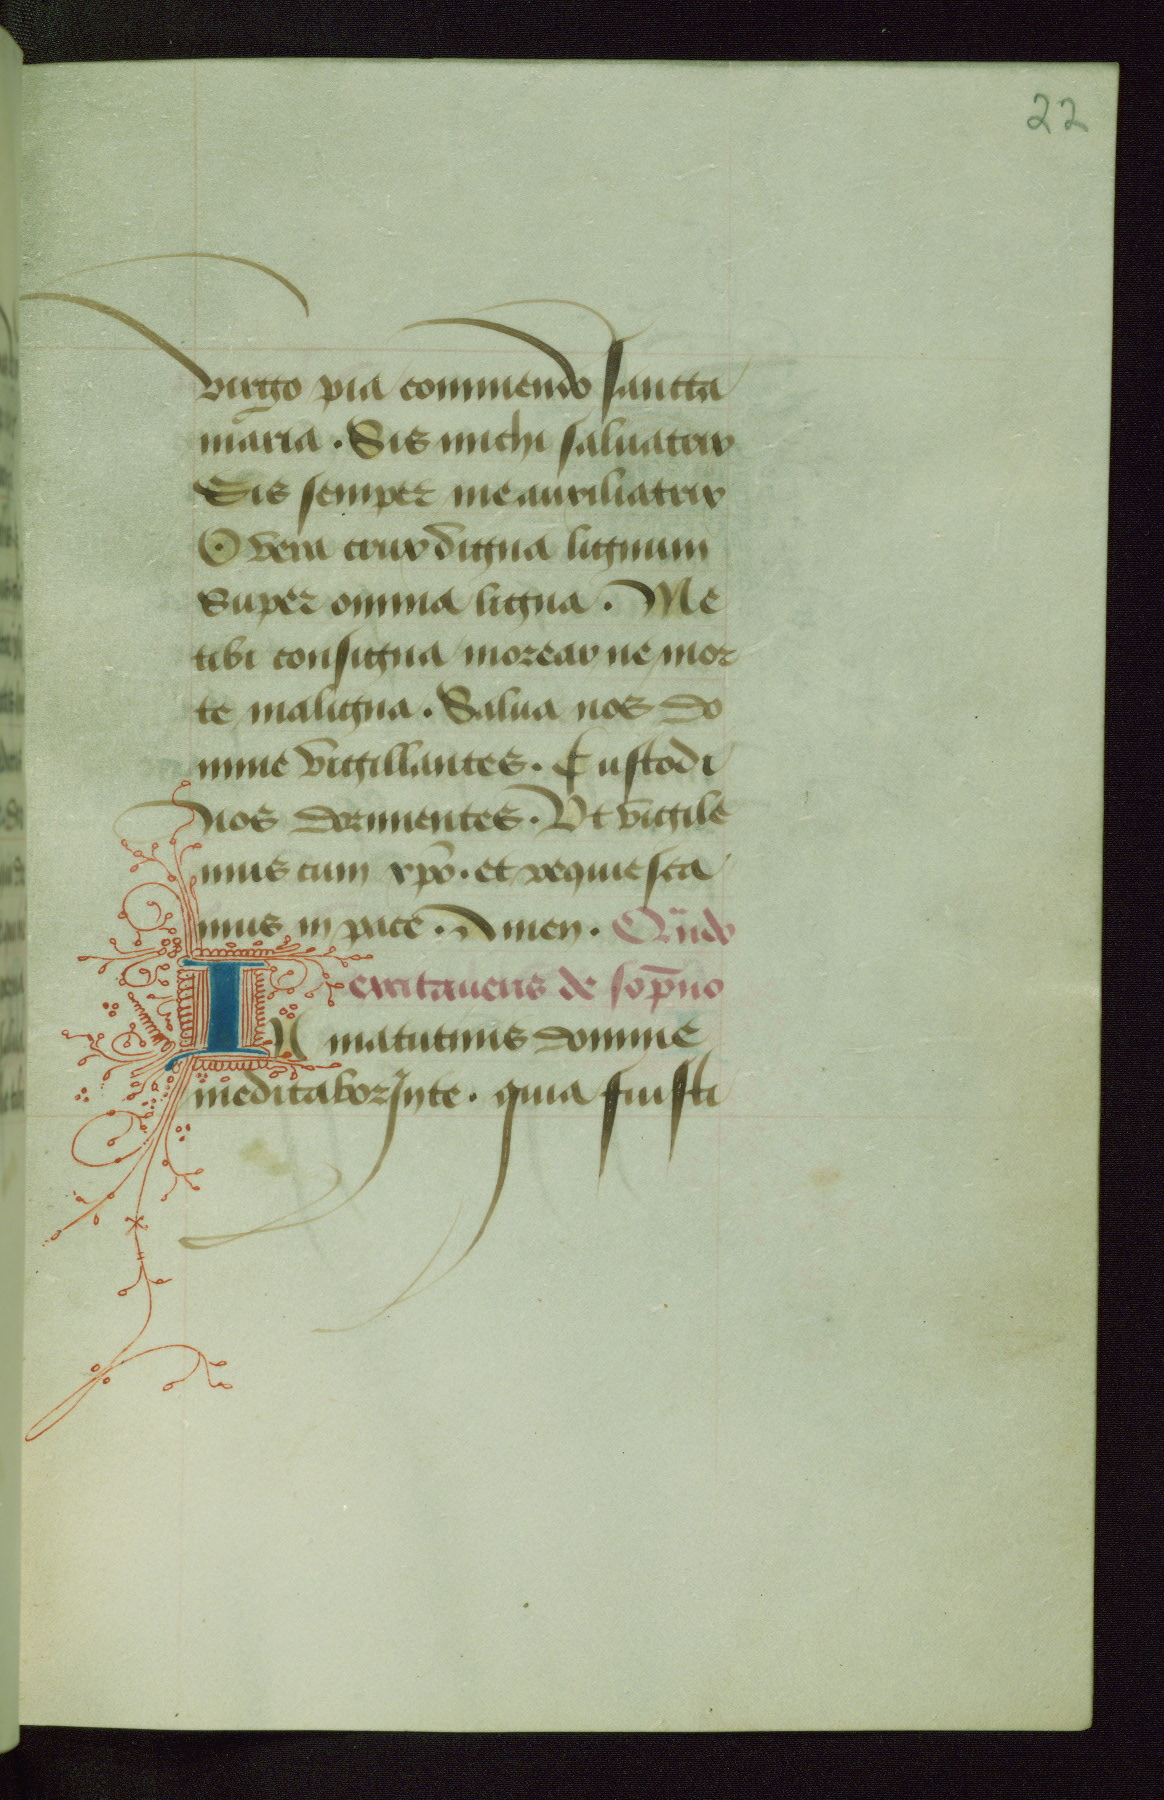 22
virgo pia commendo sancta
maria. Sis michi saluatrix
Sis semper me auxiliatrix
O vera crux digna lignum
super omnia ligna. Me
tibi consigna morear ne mor
te maligna. Salua nos do
mine vigillantes. Custodi
nos dormientes. Vt vigile
mus cum xpō. et requiesca
mus in pace. Amen. Qñdo
excitaueris de sop̄no
IN matutinis domine
meditabor Inte. quia fuisti